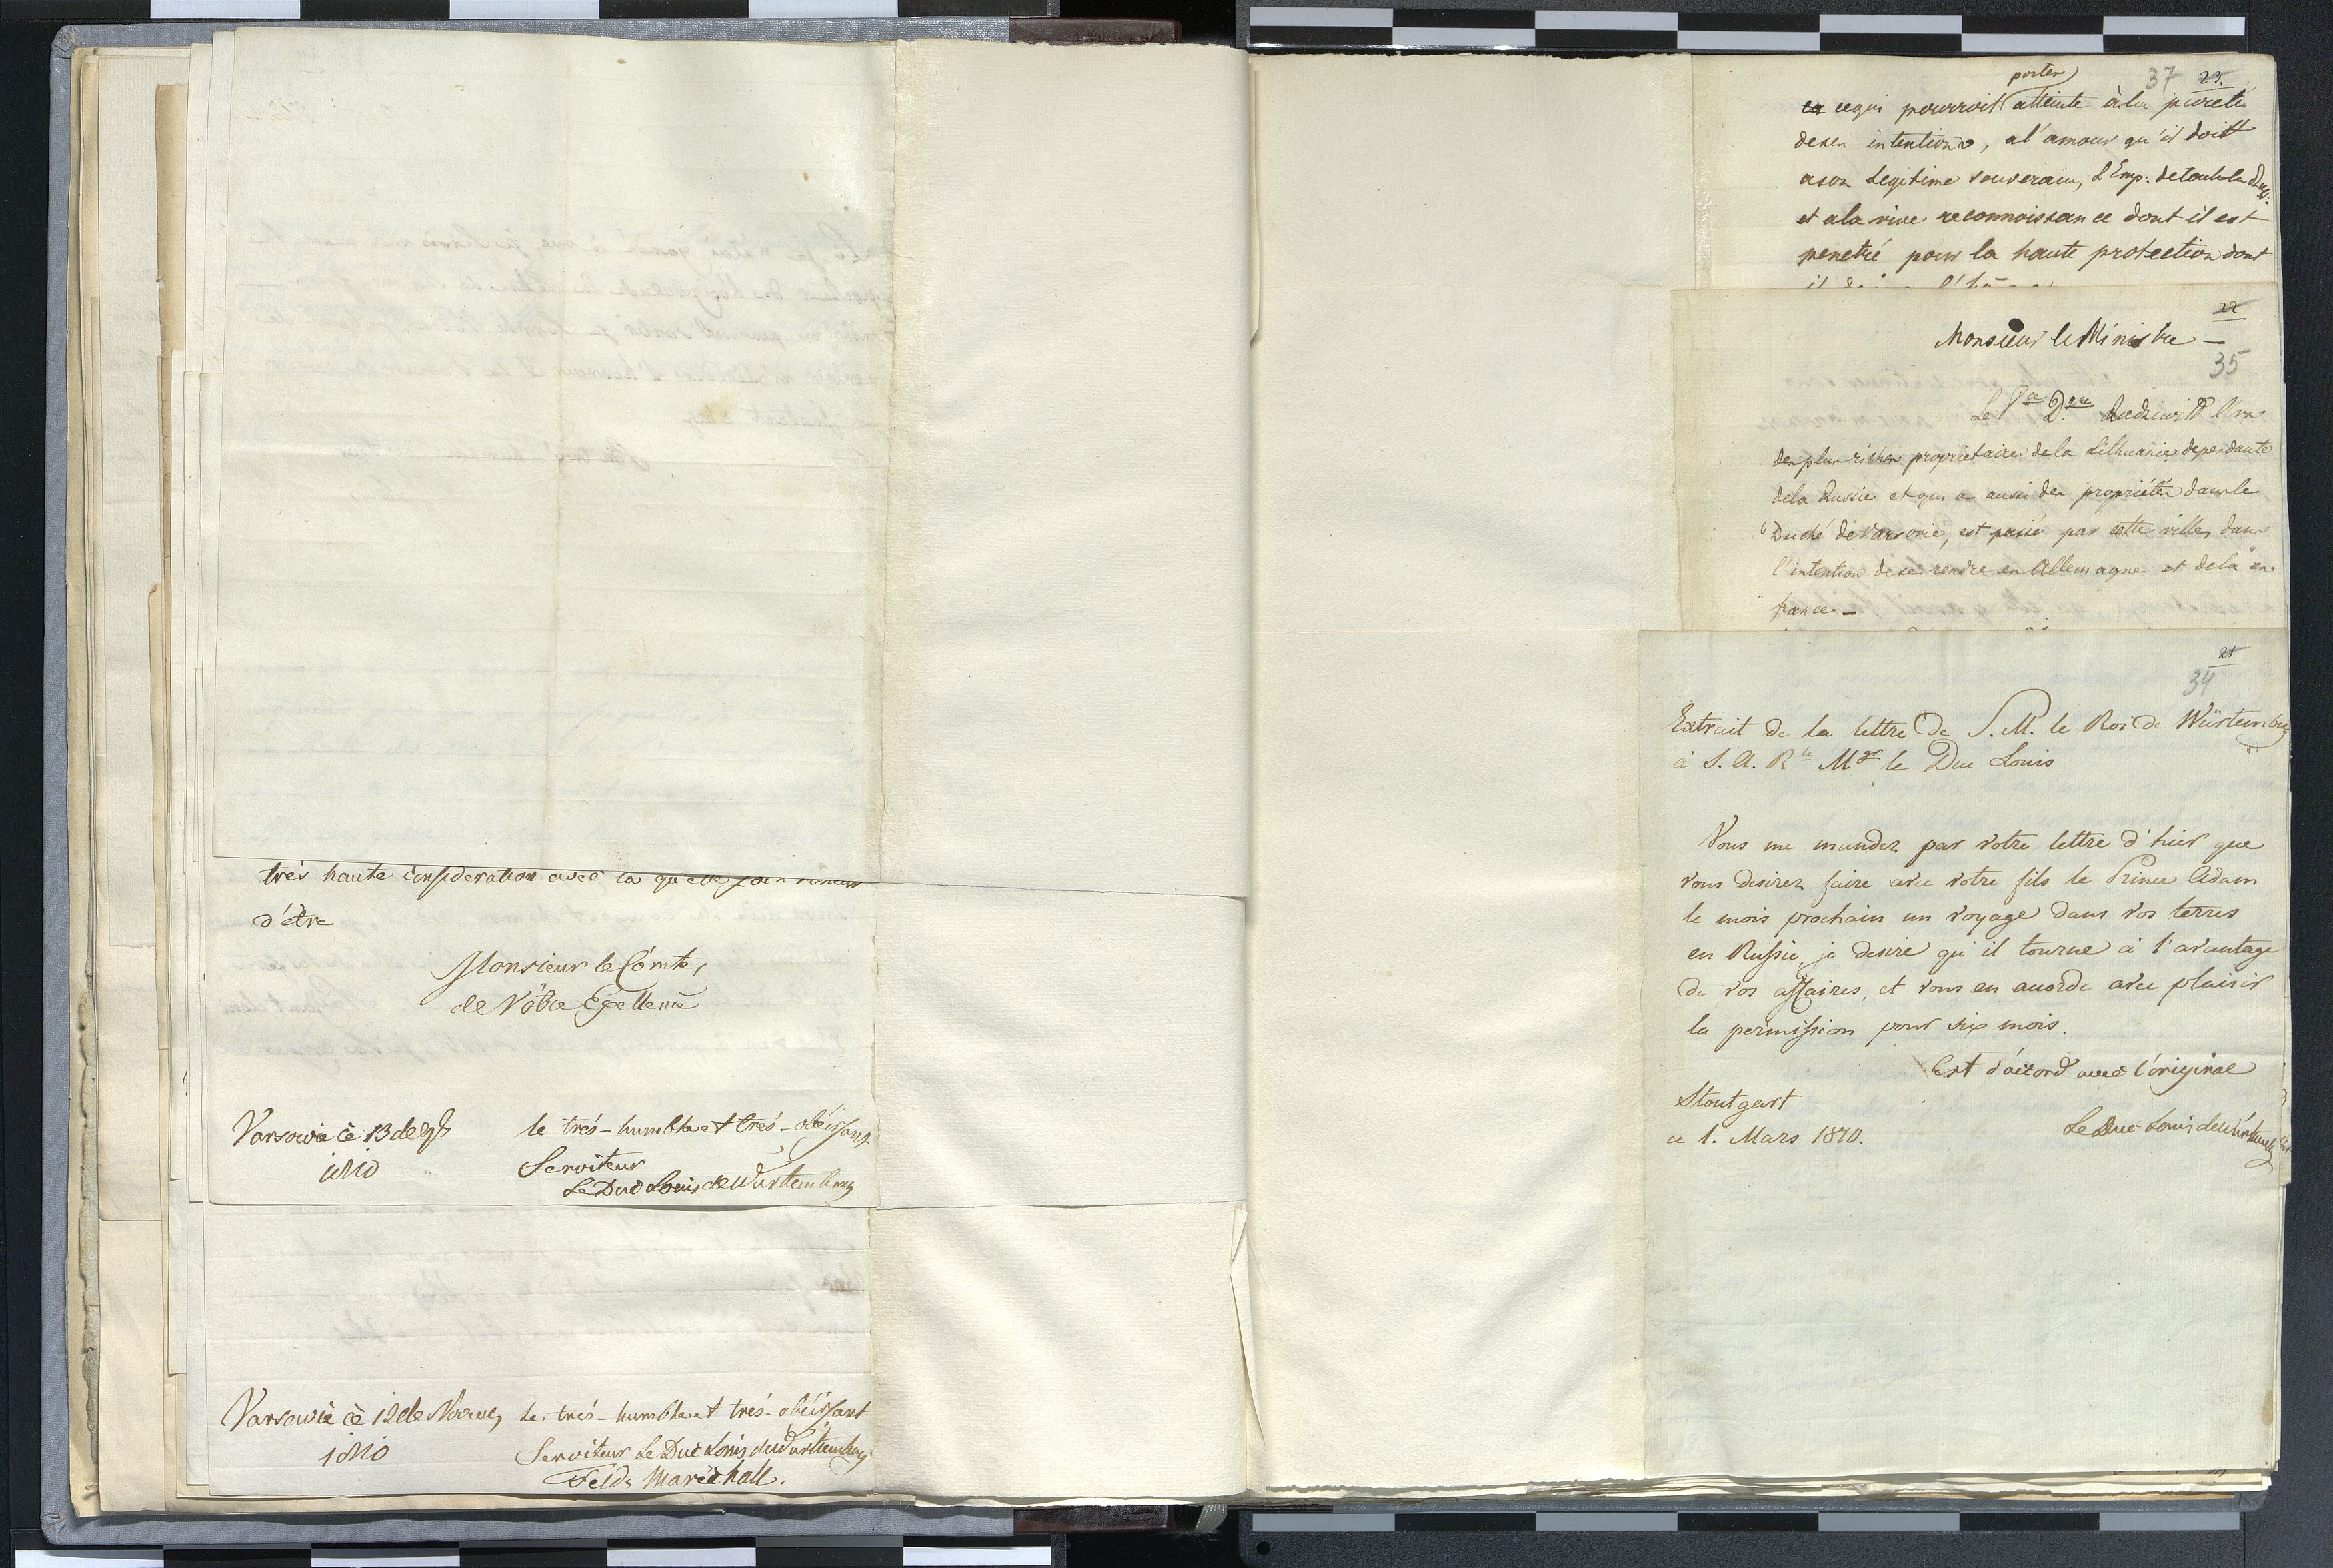 très haute consideration avec la qu'elle
d'être
Monsieur le Cómte,
de Vôtre Exellence
Varsovie cè 13 de
1810
le trés-humble et trés-obéissant
Serviteur
Le Duc Louis de Wurtemberg
Varsovie cè 12 de Novve,
1810
le trés-humble et trés-obéissant
Serviteur Le Duc Louis de Wurtemberg
Feld, Maréchall.
37 23.
porter
ce qui pourroit atteinte à la pureté
de ses intentions, a l'amour qu'il doit
a son Legitime souverain, L'Emp: de toutes les
et a la vive reconnoissance dont il est
penetré pour la haute protection dont
22
Monsieur le Ministre —
35
Le Pce Dque Radziwill l'un
des plus riches propriétaires de la Lithuanie dependante
de la Russie et qui a aussi des propriétés dans le
Duché de Varsovie, est passé par cette ville, dans
l'intention de se rendre en Allemagne et de la en
france. —
21
34
Extrait de la lettre de S. M. le Roi de Würtemberg
à S. A. Rle Mgr le Duc Louis
Vous me mandez par votre lettre d'hier que
vous desirez faire avec votre fils le Prince Adam
le mois prochain un voyage dans vos terres
en Russie, je desire qu'il tourne à l'avantage
de vos affaires, et vous en accorde avec plaisir
la permission pour six mois.
Est d'acord avec l'original
Stoutgart
ce 1. Mars 1810.
Le Duc Louis de Würtemberg